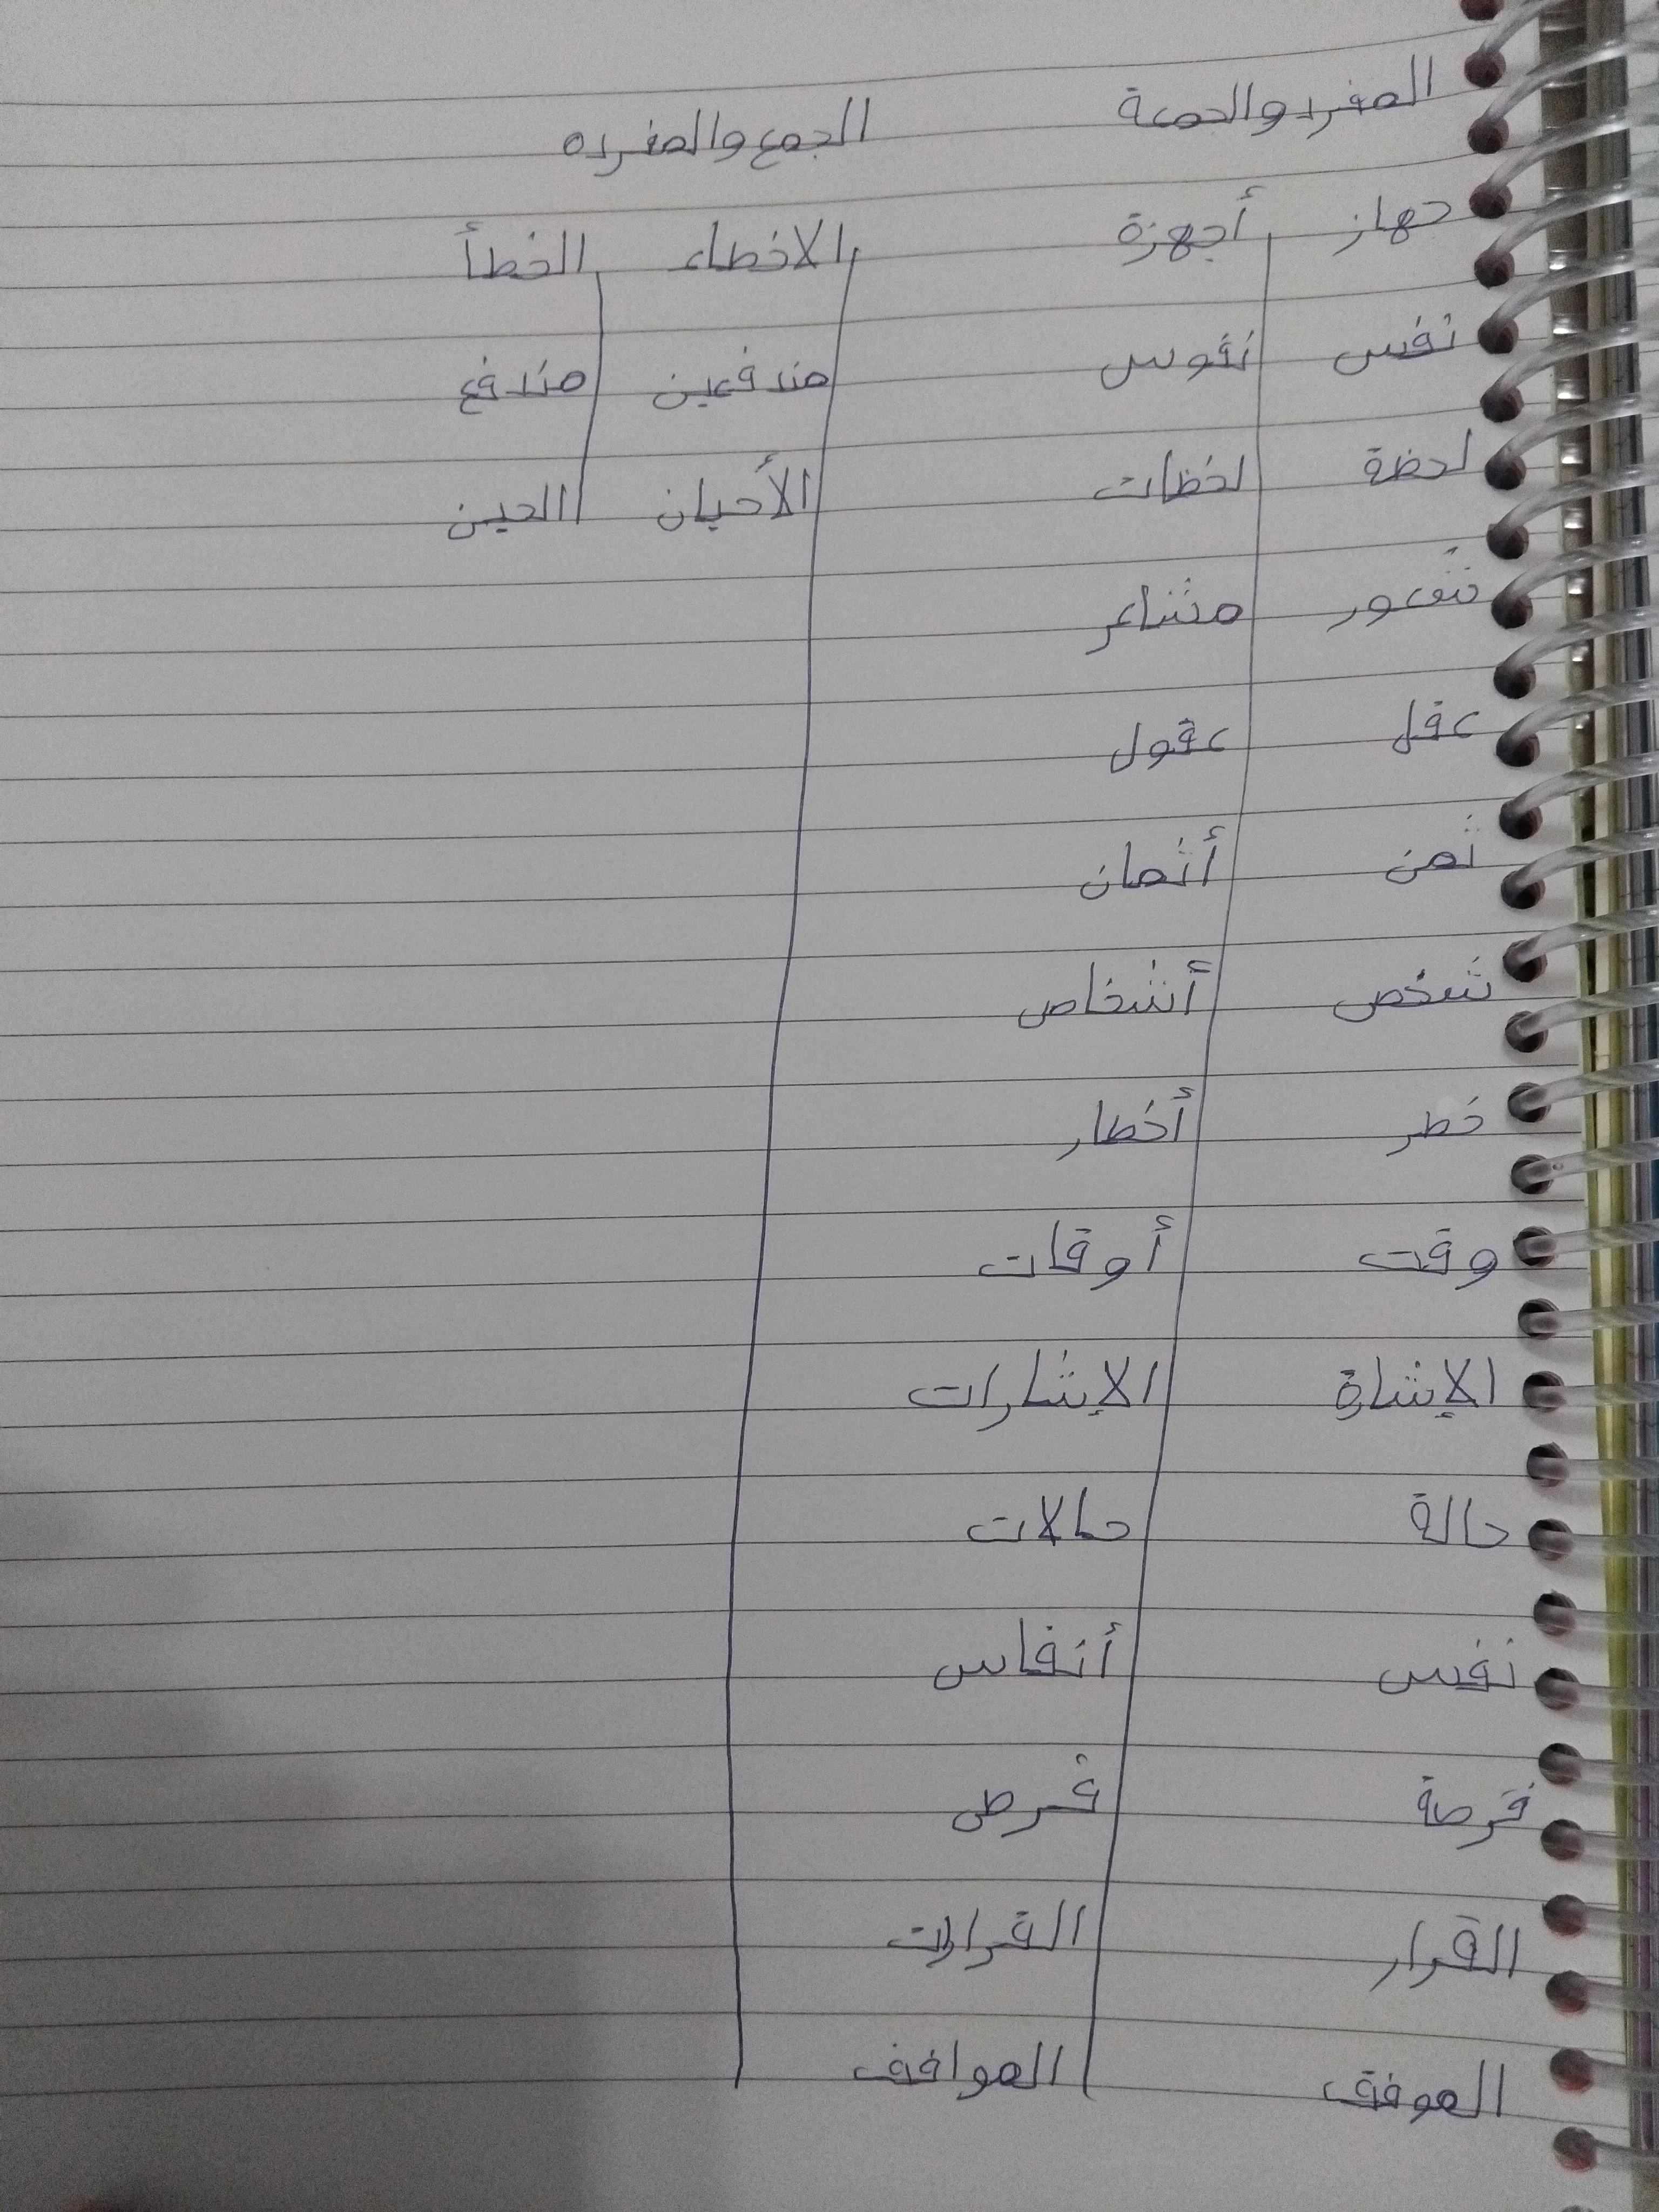 المفرد والجمعة الجمع والمفرده
جهاز أجهزة الاخطاء الخطأ
نفس نفوس مندفعين مندفع
لحظة لخظات الأحيان الحين
شعور مشاعر
عقل عقول
ثمن أثمان
شخص أشخاص
خطر أخطار
وقت أوقات
الإشارة الإشارات
حالة حالات
نفس أنفاس
فرصة فرص
القرار القرارات
الموفق الموافف